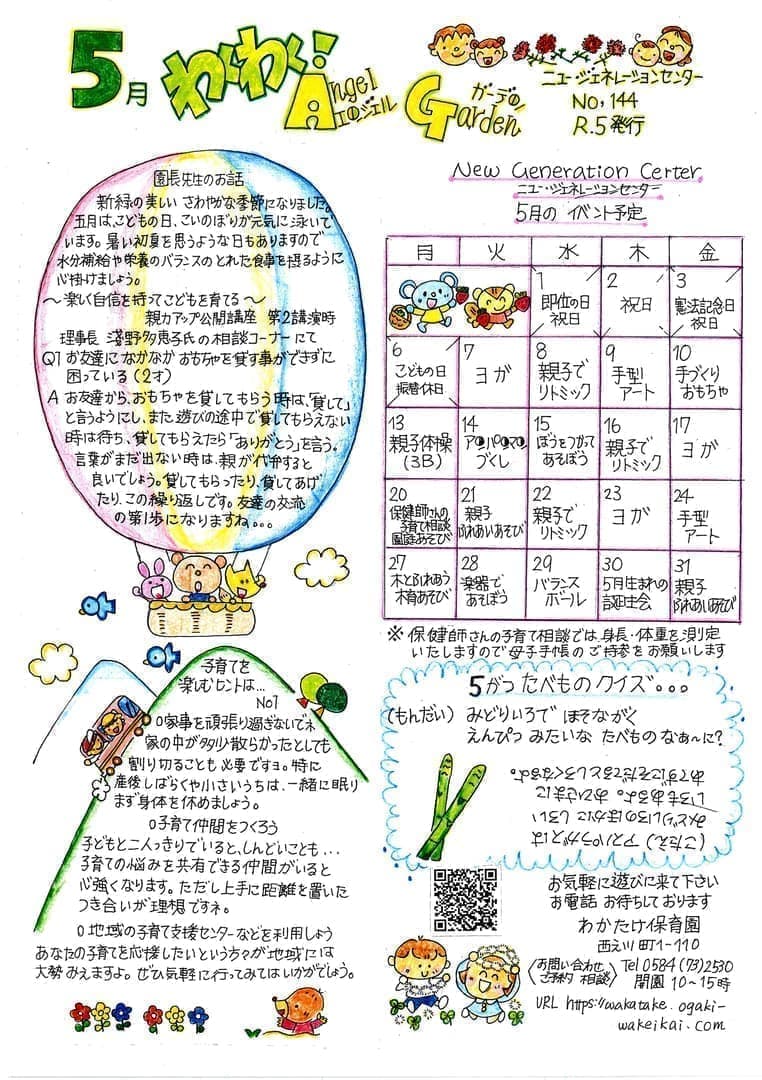 5月 わくわく!
Angel エンジェル
Garden ガーデン
ニュージェネレーションセンター
No.144
R.5発行
園長先生のお話
新緑の美しい さわやかな季節になりました。
五月は、こどもの日、こいのぼりが元気に泳いで
います。暑い初夏を思うような日もありますので
水分補給や栄養のバランスのとれた食事を摂るように
心掛けましょう。
〜楽しく自信を持ってこどもを育てる〜
親力アップ公開講座 第2講演時
理事長 淺野多恵子氏の相談コーナーにて
Q1 お友達になかなか おもちゃを貸す事ができずに
困っている(2才)
A お友達から、おもちゃを貸してもらう時は、「貸して」
と言うようにし、また遊びの途中で貸してもらえない
時は待ち、貸してもらえたら「ありがとう」を言う。
言葉がまだ出ない時は、親が代弁すると
良いでしょう。貸してもらったり、貸してあげ
たり、この繰り返しです。友達の交流
の第1歩になりますね...
子育てを
楽しむヒントは...
No1
O家事を頑張り過ぎないでネ
家の中が多少散らかったとしても
割り切ることも必要ですョ。特に
産後しばらくや小さいうちは、一緒に眠り
まず身体を休めましょう。
O子育て仲間をつくろう
子どもと二人っきりでいると、しんどいことも...
子育ての悩みを共有できる仲間がいると
心強くなります。ただし上手に距離を置いた
つき合いが理想ですネ。
O地域の子育て支援センターなどを利用しよう
あなたの子育てを応援したいという方々が地域には
大勢みえますよ。ぜひ気軽に行ってみてはいかがでしょう。
New Generation Certer
ニュー・ジェネレーションセンター
5月の イベント予定
月 火 水 木 金
1 即位の日 祝日
2 祝日
3 憲法記念日 祝日
6 こどもの日 振替休日
7 ヨガ
8 親子で リトミック
9 手型 アート
10 手づくり おもちゃ
13 親子体操 (3B)
14 アンパンマン づくし
15 ぼうをつかって あそぼう
16 親子で リトミック
17 ヨガ
20 保健師さんの 子育て相談 園庭あそび
21 親子 ふれあいあそび
22 親子で リトミック
23 ヨガ
24 手型 アート
27 木とふれあう 木育あそび
28 楽器で あそぼう
29 バランス ボール
30 5月生まれの 誕生会
31 親子 ふれあいあそび
※保健師さんの子育て相談では、身長・体重を測定
いたしますので母子手帳のご持参をお願いします
5がつ たべもの クイズ...
(もんだい) みどりいろで ほそながく
えんぴつ みたいな たべもの なぁ〜に?
(こたえ) アスパラガスとは
みどりいろのほかに しろい
いろもあるよ。おひさまに
あてずにそだてるとしろくなるよ。
お気軽に遊びに来て下さい
お電話 お待ちしております
わかたけ保育園
西之川町1-110
〈お問い合わせ ご予約 相談〉 Tel 0584(73)2530
開園 10〜15時
URL https://wakatake.ogaki-
wakeikai.com